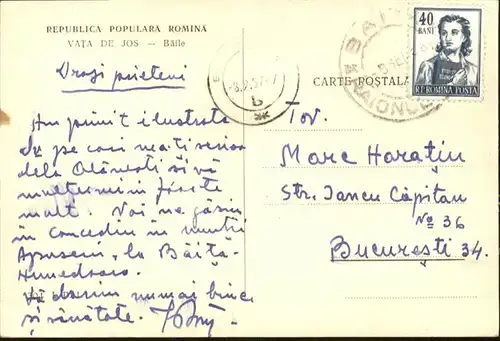 REPUBLICA POPULARA ROMINA
VAȚA DE JOS — Băile
CARTE POSTALA
40
BANI
R.P. ROMINA POSTA
Dragi prieteni
Am primit ilustrata
dv pe care mi-ați
dela Olănești și vă
mulțumim foarte
mult. Noi ne găsim
în concediu în munții
Apuseni, la Băița-
Hunedoara.
Vă dorim numai bine
și sănătate.
Tov.
Marc Horațiu
Str. Iancu Căpitan
No 36
București 34.